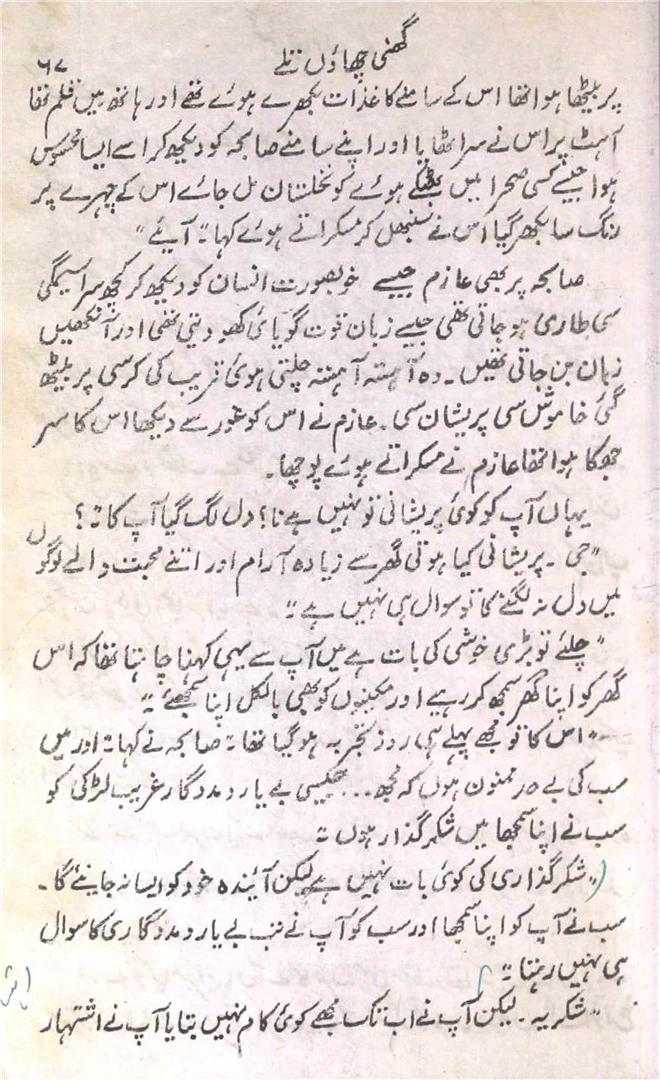 گھنی چھاؤں تلے
۶۷
پر بیٹھا ہوا تھا اس کے سامنے کاغذات بکھرے ہوئے تھے اور ہاتھ میں قلم تھا
آہٹ پر اس نے سر اٹھایا اور اپنے سامنے صابحہ کو دیکھ کر اسے ایسا محسوس
ہوا جیسے کسی صحرا میں بھٹکے ہوئے کو نخلستان مل جائے اس کے چہرے پر
رنگ سا بکھر گیا اس نے سنبھل کر مسکراتے ہوئے کہا "آیئے"
صابحہ پر بھی عازم جیسے خوبصورت انسان کو دیکھ کر کچھ سراسیمگی
سی طاری ہو جاتی تھی جیسے زبان قوت گویائی کھو دیتی تھی اور آنکھیں
زبان بن جاتی تھیں۔ وہ آہستہ آہستہ چلتی ہوئی قریب کی کرسی پر بیٹھ
گئی خاموش سی پریشان سی۔ عازم نے اس کو غور سے دیکھا اس کا سر
جھکا ہوا تھا عازم نے مسکراتے ہوئے پوچھا۔
یہاں آپ کو کوئی پریشانی تو نہیں ہے نا؟ دل لگ گیا آپ کا"؟
"جی۔ پریشانی کیا ہوتی گھر سے زیادہ آرام اور اتنے محبت والے لوگوں
میں دل نہ لگنے کا تو سوال ہی نہیں ہے"
"چلئے تو بڑی خوشی کی بات ہے میں آپ سے یہی کہنا چاہتا تھا کہ اس
گھر کو اپنا گھر سمجھ کر رہیے اور مکینوں کو بھی بالکل اپنا سمجھئے"
"اس کا تو مجھے پہلے ہی روز تجربہ ہو گیا تھا" صابحہ نے کہا" اور میں
سب کی بے حد ممنون ہوں کہ مجھ... جیسی بے یار و مددگار غریب لڑکی کو
سب نے اپنا سمجھا میں شکر گذار ہوں"
"شکر گذاری کی کوئی بات نہیں ہے لیکن آئندہ خود کو ایسا نہ جانیئے گا۔
سب نے آپ کو اپنا سمجھا اور سب کو آپ نے تب بے یار و مددگاری کا سوال
ہی نہیں رہتا"
"شکریہ۔ لیکن آپ نے اب تک مجھے کوئی کام نہیں بتایا آپ نے اشتہار